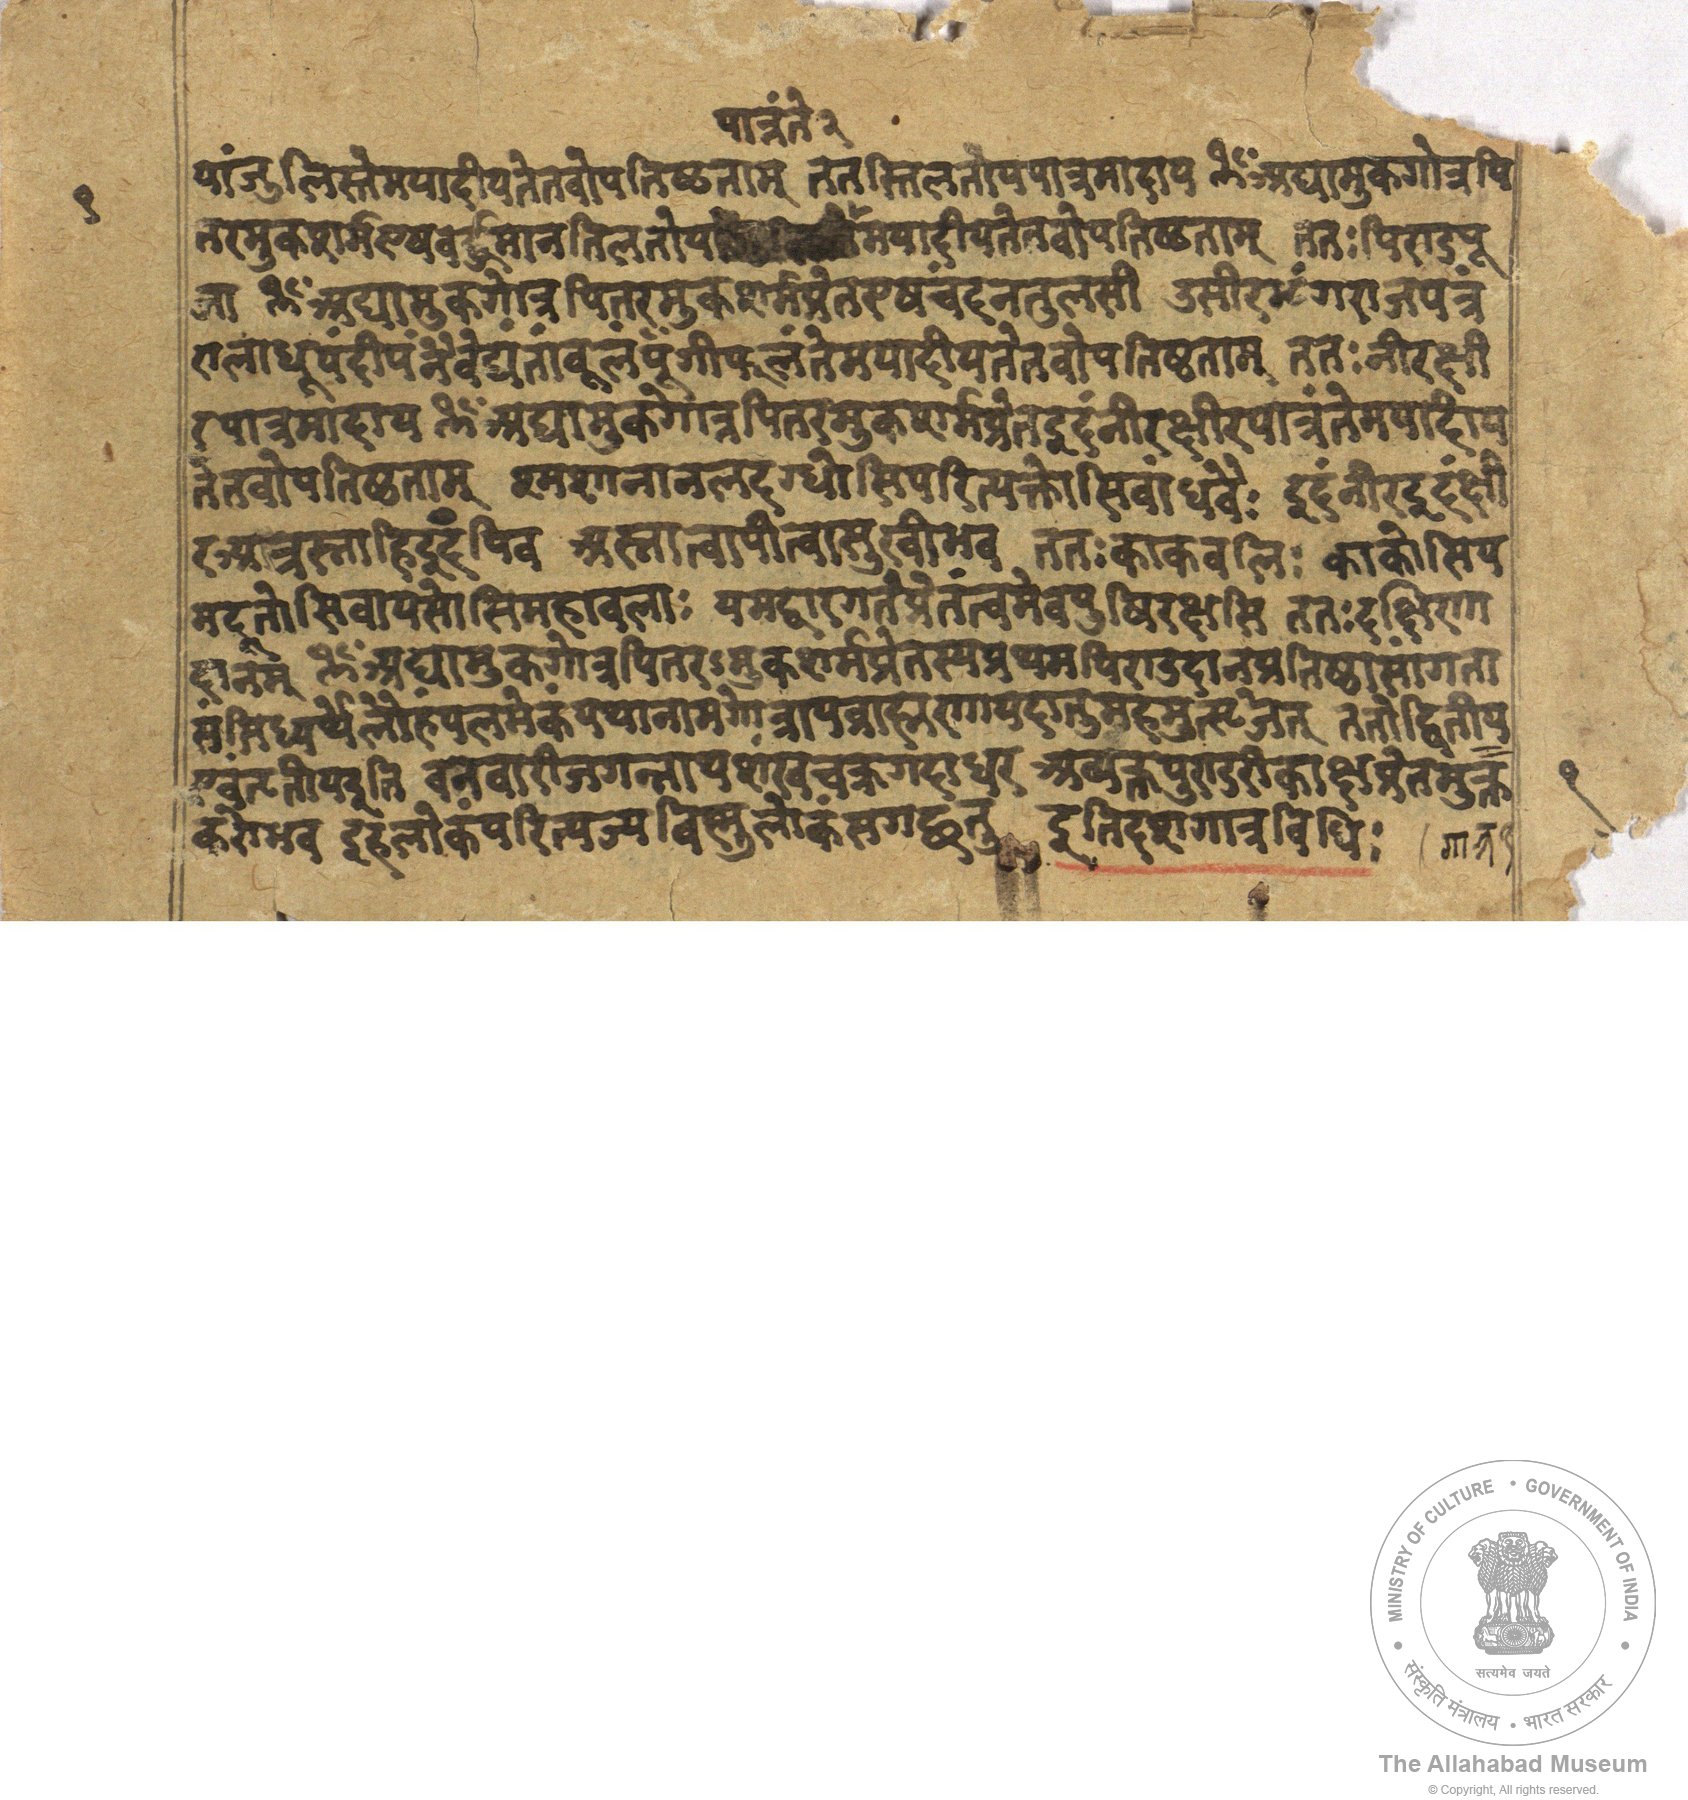 पात्रंते २
पांजुलिस्तेमयादीयतेतवोपतिष्ठताम् ततस्तिलतोयपात्रमादाय ॐअद्यामुकगोत्रपि
१
तरमुकशर्मएषवर्द्धमानतिलतोय मयादीयतेतवोपतिष्ठताम् ततः पिण्डपू
जा ॐअद्यामुकगोत्रपितरमुकशर्मप्रेतएषचंदनतुलसी उसीरभंगराजपत्रं
लाधूपंदीपंनैवेद्यंतांवूलंपूंगीफलंतेमयादीयतेतवोपतिष्ठताम् ततः नीरक्षी
रपात्रमादाय ॐअद्यामुकगोत्रपितरमुकशर्मप्रेतइदंनीरक्षीरपात्रंतेमयादीय
तेतवोपतिष्ठताम् श्मशानानलदग्धोसिपरित्यक्तोसिवांधवैः इदंनीरइदंक्षी
रअत्रस्नाहिइदंपिव अस्नात्वापीत्वासुखीभव ततः काकवलिः काकोसिय
मदूतोसिवायसोसिमहावलाः यमद्वारगतंप्रेतंत्वमेवपुषिरक्षसि ततः दक्षिणा
दानम् ॐअद्यामुकगोत्रपितरऽमुकशर्मप्रेतस्यप्रथमपिण्डदानप्रतिष्ठासांगता
संसिध्यर्थंलोहंपलमेकंयथानामगोत्रायब्राह्मणायदातुमहमुत्सृजेत् ततोद्वितीय
एवंतृतीयइति वनवारीजगन्नाथशंखचक्रगदाधर अव्यक्तपुण्डरीकाक्षप्रेतमुक्त
१
करोभव इहलोकंपरित्यज्यविष्णुलोकंसगछतु इतिदशगात्रविधिः
गात्र १
MINISTRY OF CULTURE • GOVERNMENT OF INDIA
सत्यमेव जयते
संस्कृति मंत्रालय • भारत सरकार
The Allahabad Museum
© Copyright, All rights reserved.